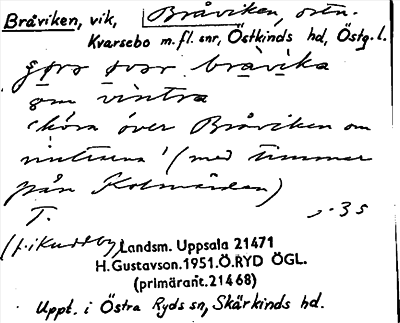 Bråviken, vik, Bråviken, ortn.
Kvarsebo m.fl. snr, Östkinds hd, Östg. l.
över bråvika
om vintra
'köra över Bråviken om
vintrarna' (med timmer
från Kolmården)
T. 35
Landsm. Uppsala 21471
H.Gustavson.1951.Ö.RYD ÖGL.
(primärant.21468)
Uppt. i Östra Ryds sn, Skärkinds hd.